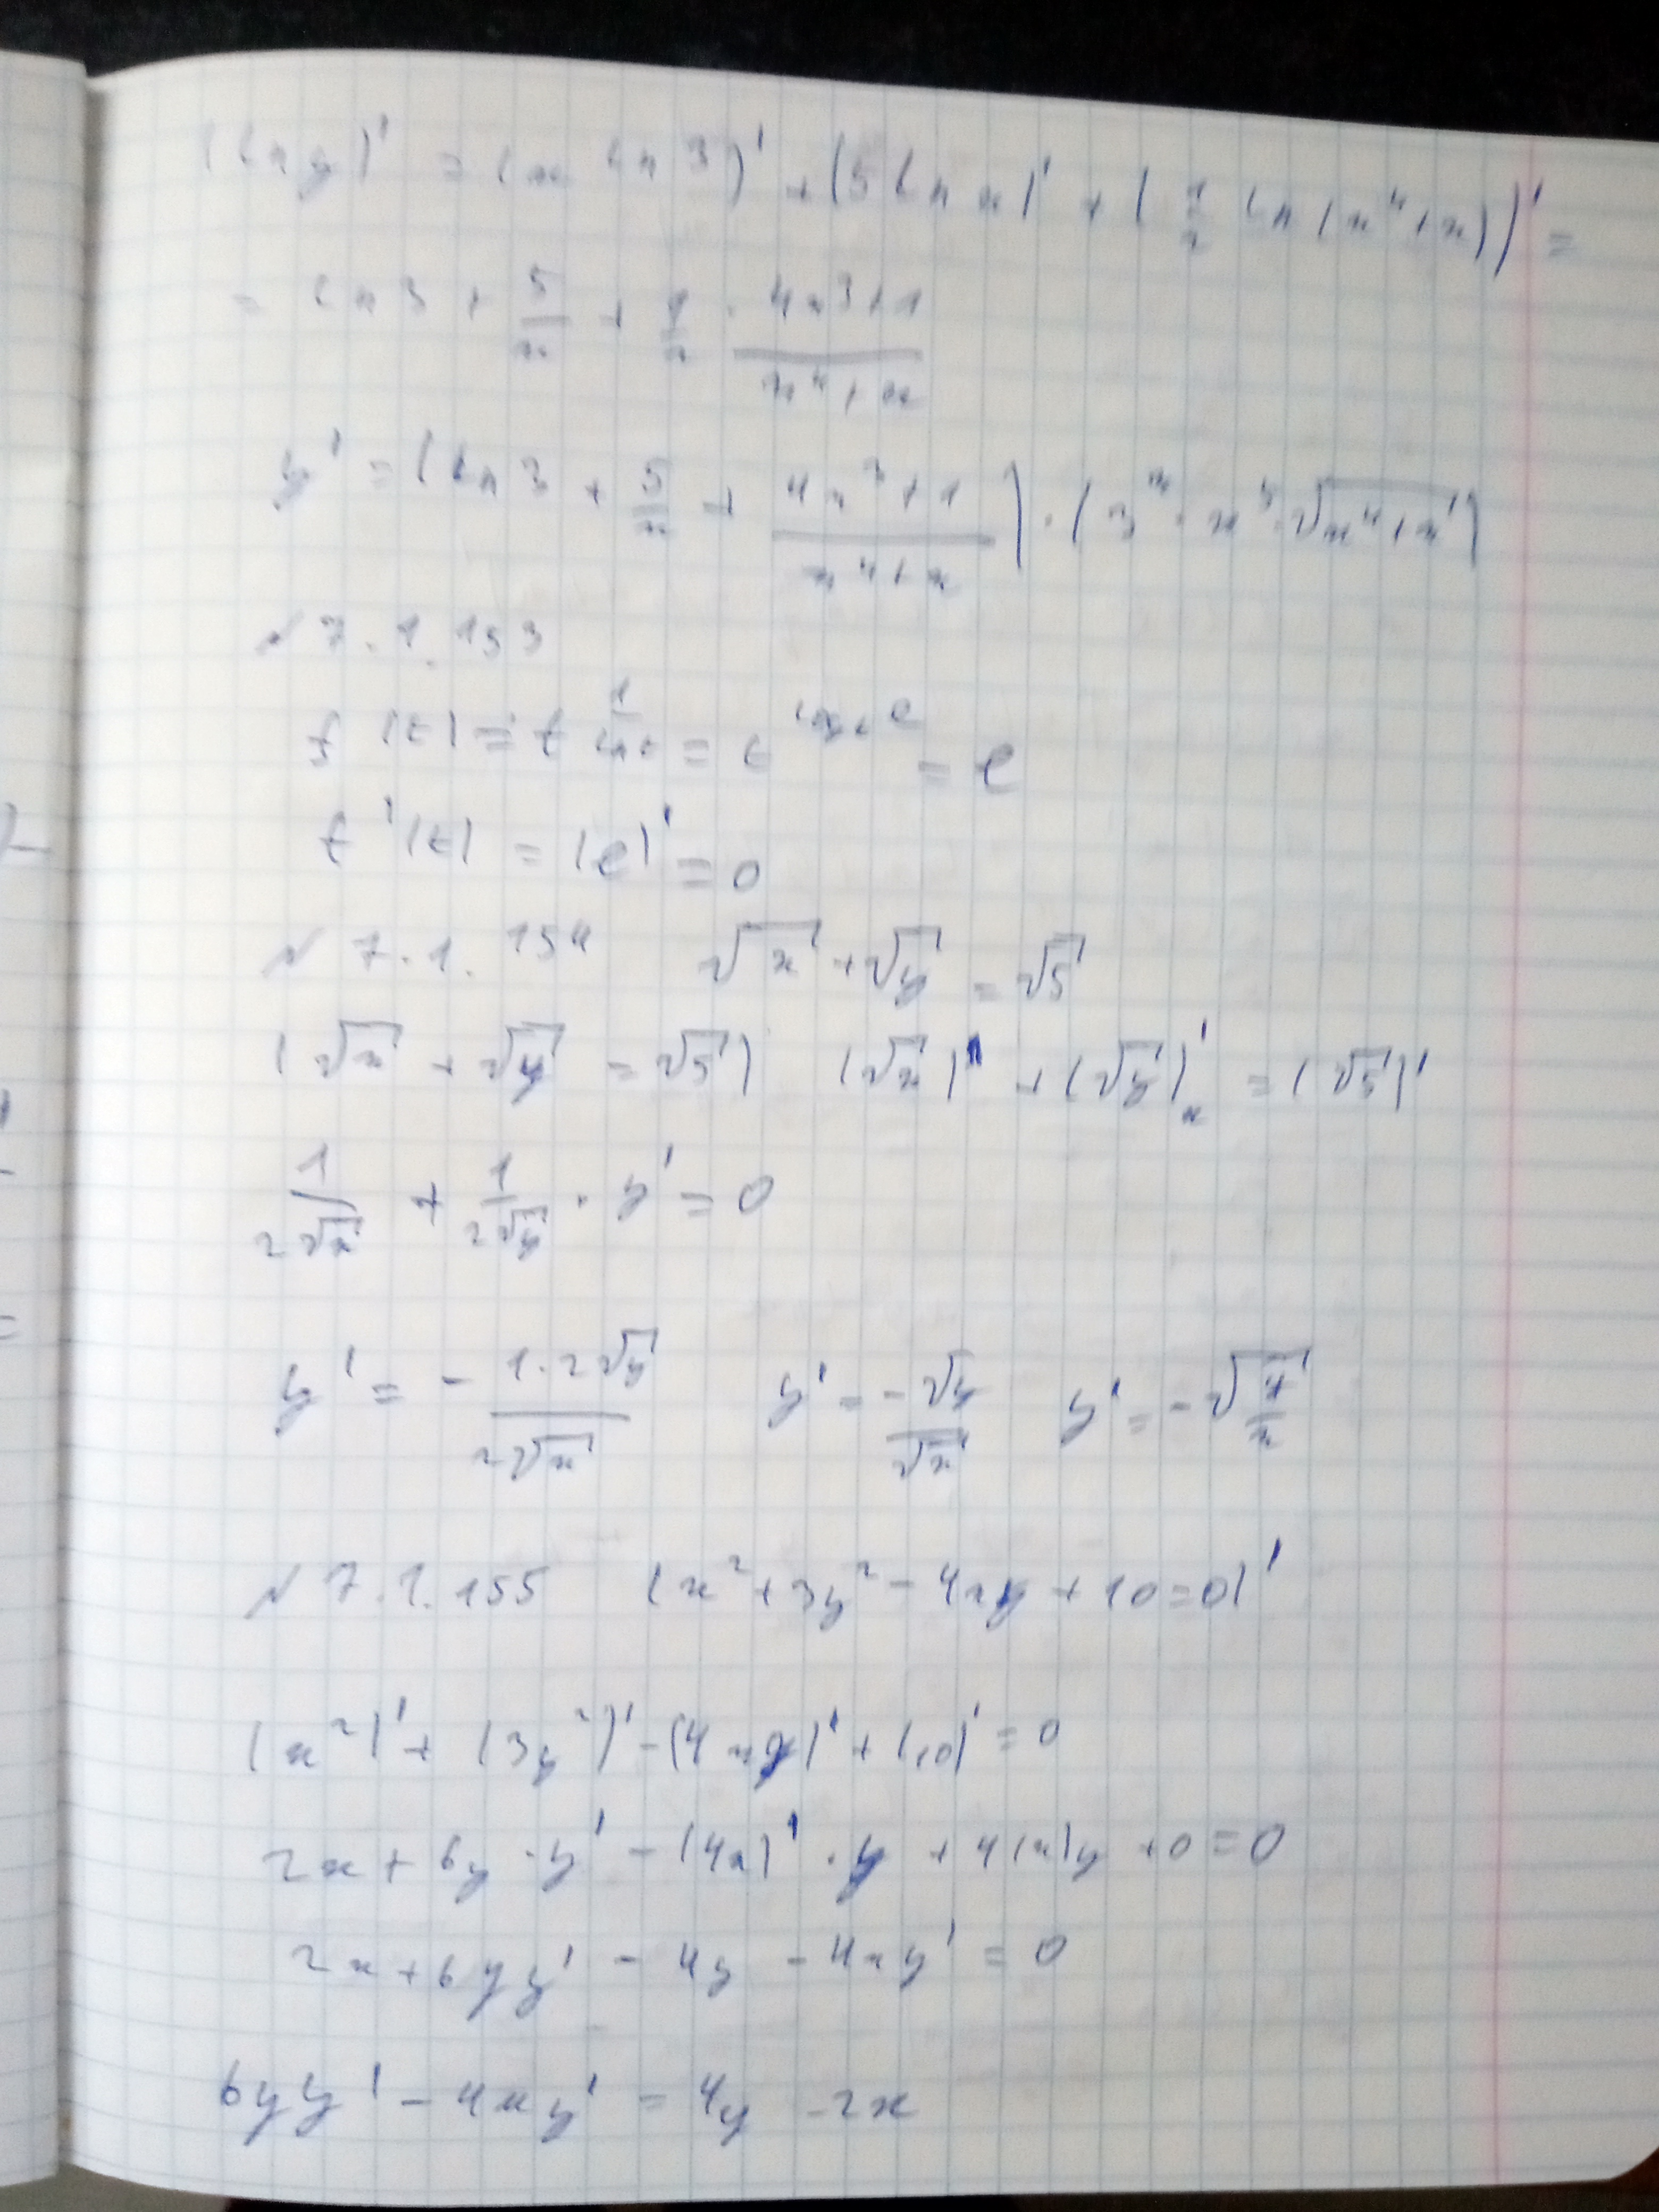 (ln y)' = (x ln 3)' + (5 ln x)' + (1/2 ln (x⁴+x))' =
= ln 3 + 5/x + 1/2 · (4x³+1)/(x⁴+x)
y' = (ln 3 + 5/x + (4x³+1)/(x⁴+x)) · (3ˣ · x⁵ · √(x⁴+x))
N 7.1.153
f(t) = t^(1/ln t) = t^(log_t e) = e
f'(t) = (e)' = 0
N 7.1.154 √x + √y = √5
(√x + √y = √5) (√x)' + (√y)'ₓ = (√5)'
1/(2√x) + 1/(2√y) · y' = 0
y' = - (1·2√y)/(2√x) y' = -√y/√x y' = -√(y/x)
N 7.1.155 (x² + 3y² - 4xy + 10 = 0)'
(x²)' + (3y²)' - (4xy)' + (10)' = 0
2x + 6y · y' - (4x)' · y + 4(x)y + 0 = 0
2x + 6yy' - 4y - 4xy' = 0
6yy' - 4xy' = 4y - 2x